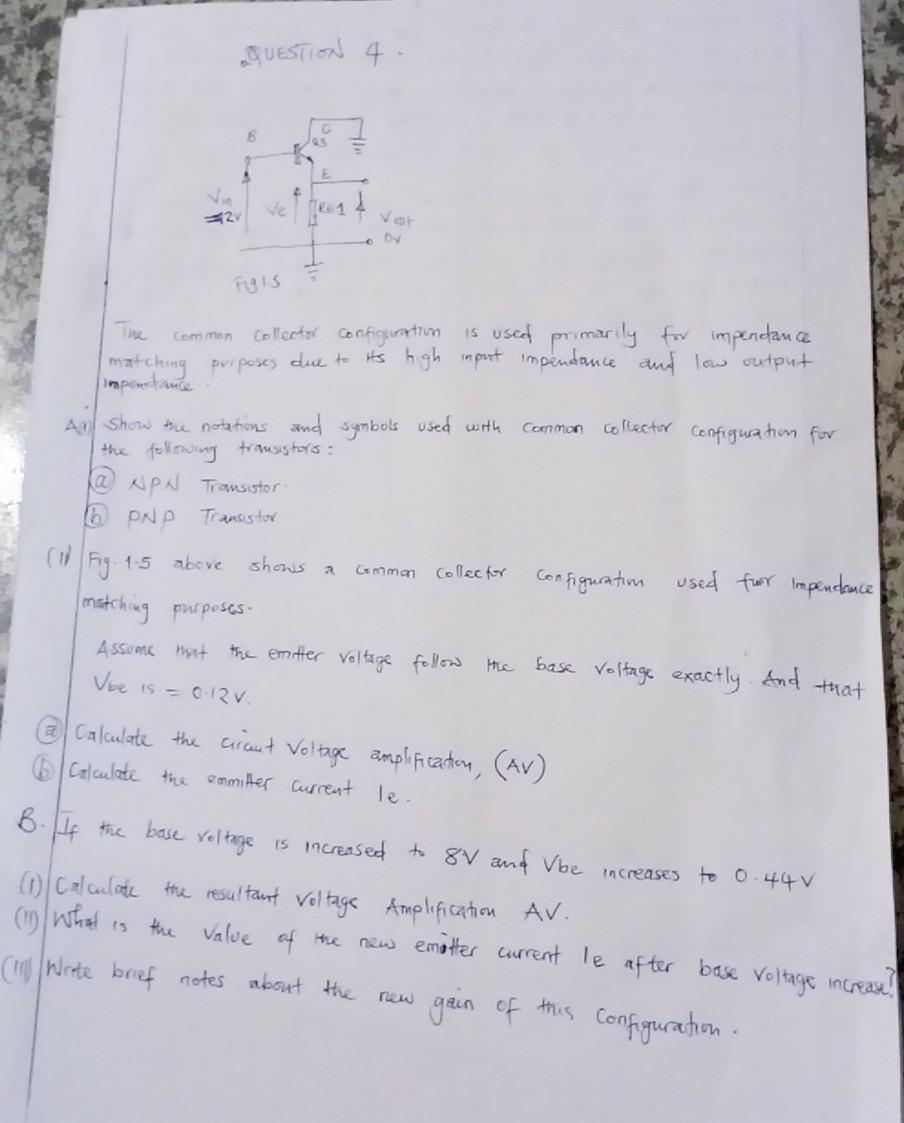 QUESTION 4.
B
C
Q3
E
Vin
=2V
Ve
Re1
Vout
0V
Fig 1.5
The common collector configuration is used primarily for impendance
matching purposes due to its high input impendance and low output
impendance.
A(i) Show the notations and symbols used with common collector configuration for
the following transistors:
(a) NPN Transistor.
(b) PNP Transistor
(ii) Fig. 1.5 above shows a common collector configuration used for impendance
matching purposes.
Assume that the emitter voltage follow the base voltage exactly. And that
Vbe is = 0.12V.
(a) Calculate the circuit voltage amplification, (AV)
(b) Calculate the emmitter current Ie.
B. If the base voltage is increased to 8V and Vbe increases to 0.44V
(i) Calculate the resultant voltage Amplification AV.
(ii) What is the value of the new emitter current Ie after base voltage increase?
(iii) Write brief notes about the new gain of this configuration.